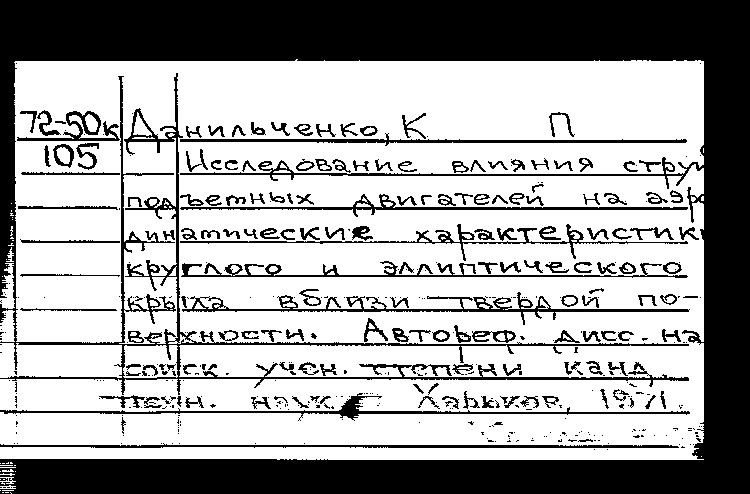 72-50к Данильченко, К П
105 Исследование влияния струй
подъемных двигателей на аэро
динамические характеристики
круглого и эллиптического
крыла вблизи твердой по-
верхности. Автореф. дисс. на
соиск. учен. степени канд.
техн. наук. Харьков, 1971.